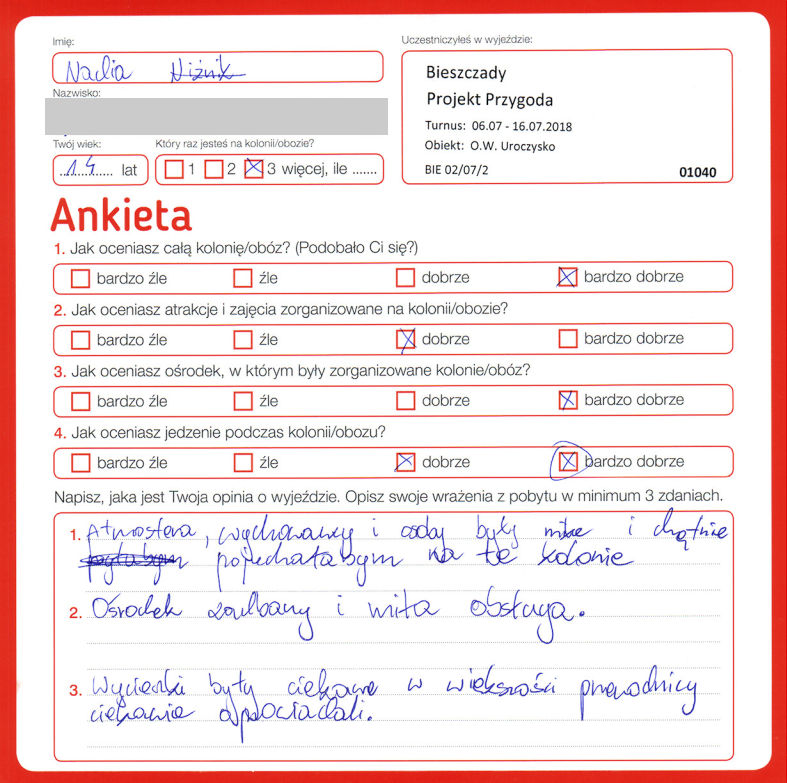 Imię:
Nadia Niżnik
Nazwisko:
Twój wiek:
14 lat
Który raz jesteś na kolonii/obozie?
1 2 3 więcej, ile .......
Uczestniczyłeś w wyjeździe:
Bieszczady
Projekt Przygoda
Turnus: 06.07 - 16.07.2018
Obiekt: O.W. Uroczysko
BIE 02/07/2 01040
Ankieta
1. Jak oceniasz całą kolonię/obóz? (Podobało Ci się?)
bardzo źle źle dobrze bardzo dobrze
2. Jak oceniasz atrakcje i zajęcia zorganizowane na kolonii/obozie?
bardzo źle źle dobrze bardzo dobrze
3. Jak oceniasz ośrodek, w którym były zorganizowane kolonie/obóz?
bardzo źle źle dobrze bardzo dobrze
4. Jak oceniasz jedzenie podczas kolonii/obozu?
bardzo źle źle dobrze bardzo dobrze
Napisz, jaka jest Twoja opinia o wyjeździe. Opisz swoje wrażenia z pobytu w minimum 3 zdaniach.
1. Atmosfera, wychowawcy i osoby były miłe i chętnie
pojechałabym na te kolonie
2. Ośrodek zadbany i miła obsługa.
3. Wycieczki były ciekawe w większości przewodnicy
ciekawie opowiadali.